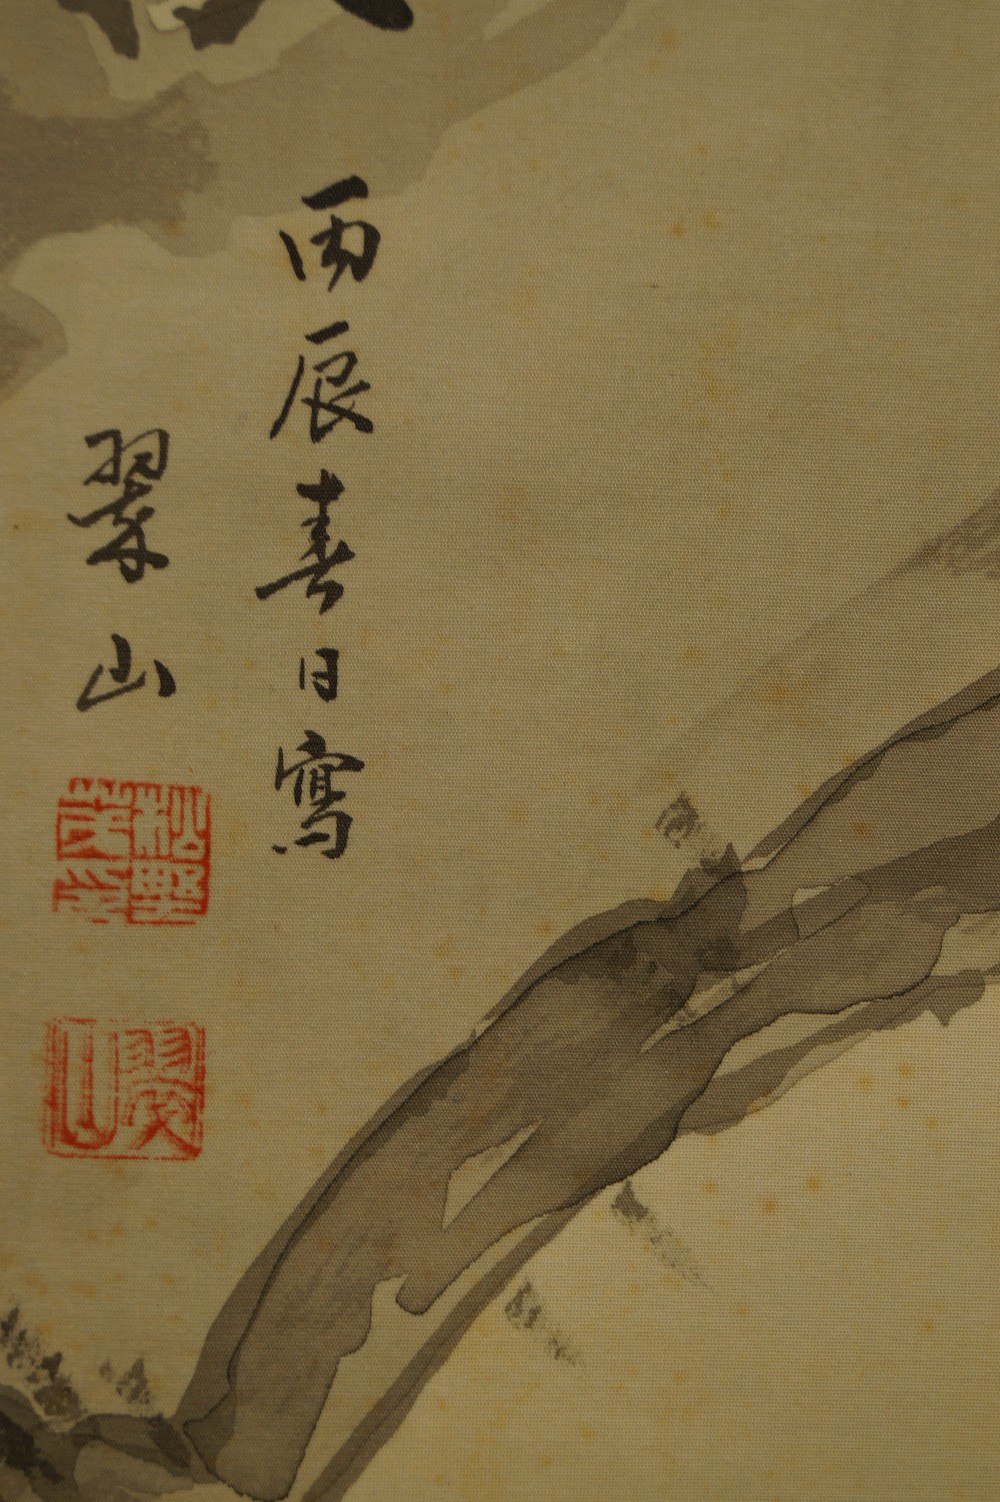 丙辰春日寫
翠山
松野
翠山